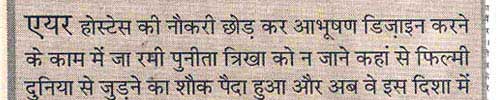 एयर होस्टेस की नौकरी छोड़ कर आभूषण डिज़ाइन करने
के काम में जा रमी पुनीता त्रिखा को न जाने कहां से फिल्मी
दुनिया से जुड़ने का शौक पैदा हुआ और अब वे इस दिशा में